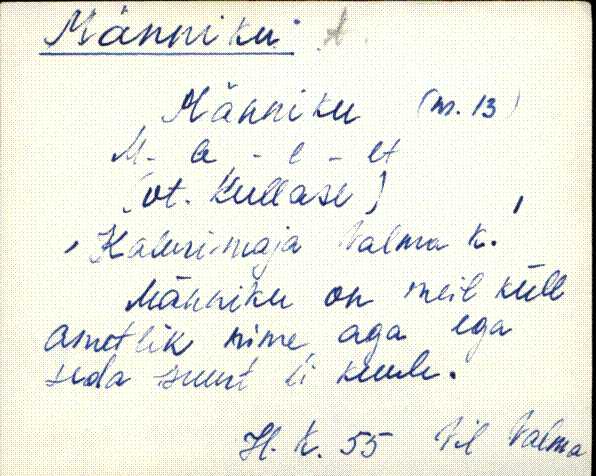 Männiku t.
Männiku (m. 13)
M- a - l - lt
[vt. Kullase]
'Kalurimaja Valma k.'
Männiku on meil küll
ametlik nime, aga ega
seda suurt ei kuule.
H. K. 55 Vil Valma